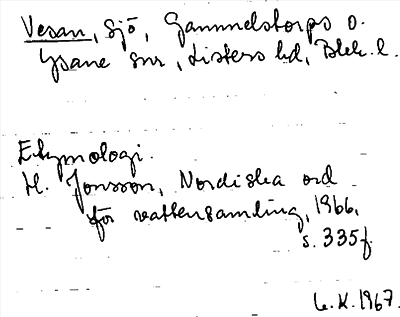 Vesan, sjö, Gammelstorps o.
Ysane snr, Listers hd, Blek. l.
Etymologi.
H. Jonsson, Nordiska ord
för vattensamling, 1966,
s. 335f.
1967.